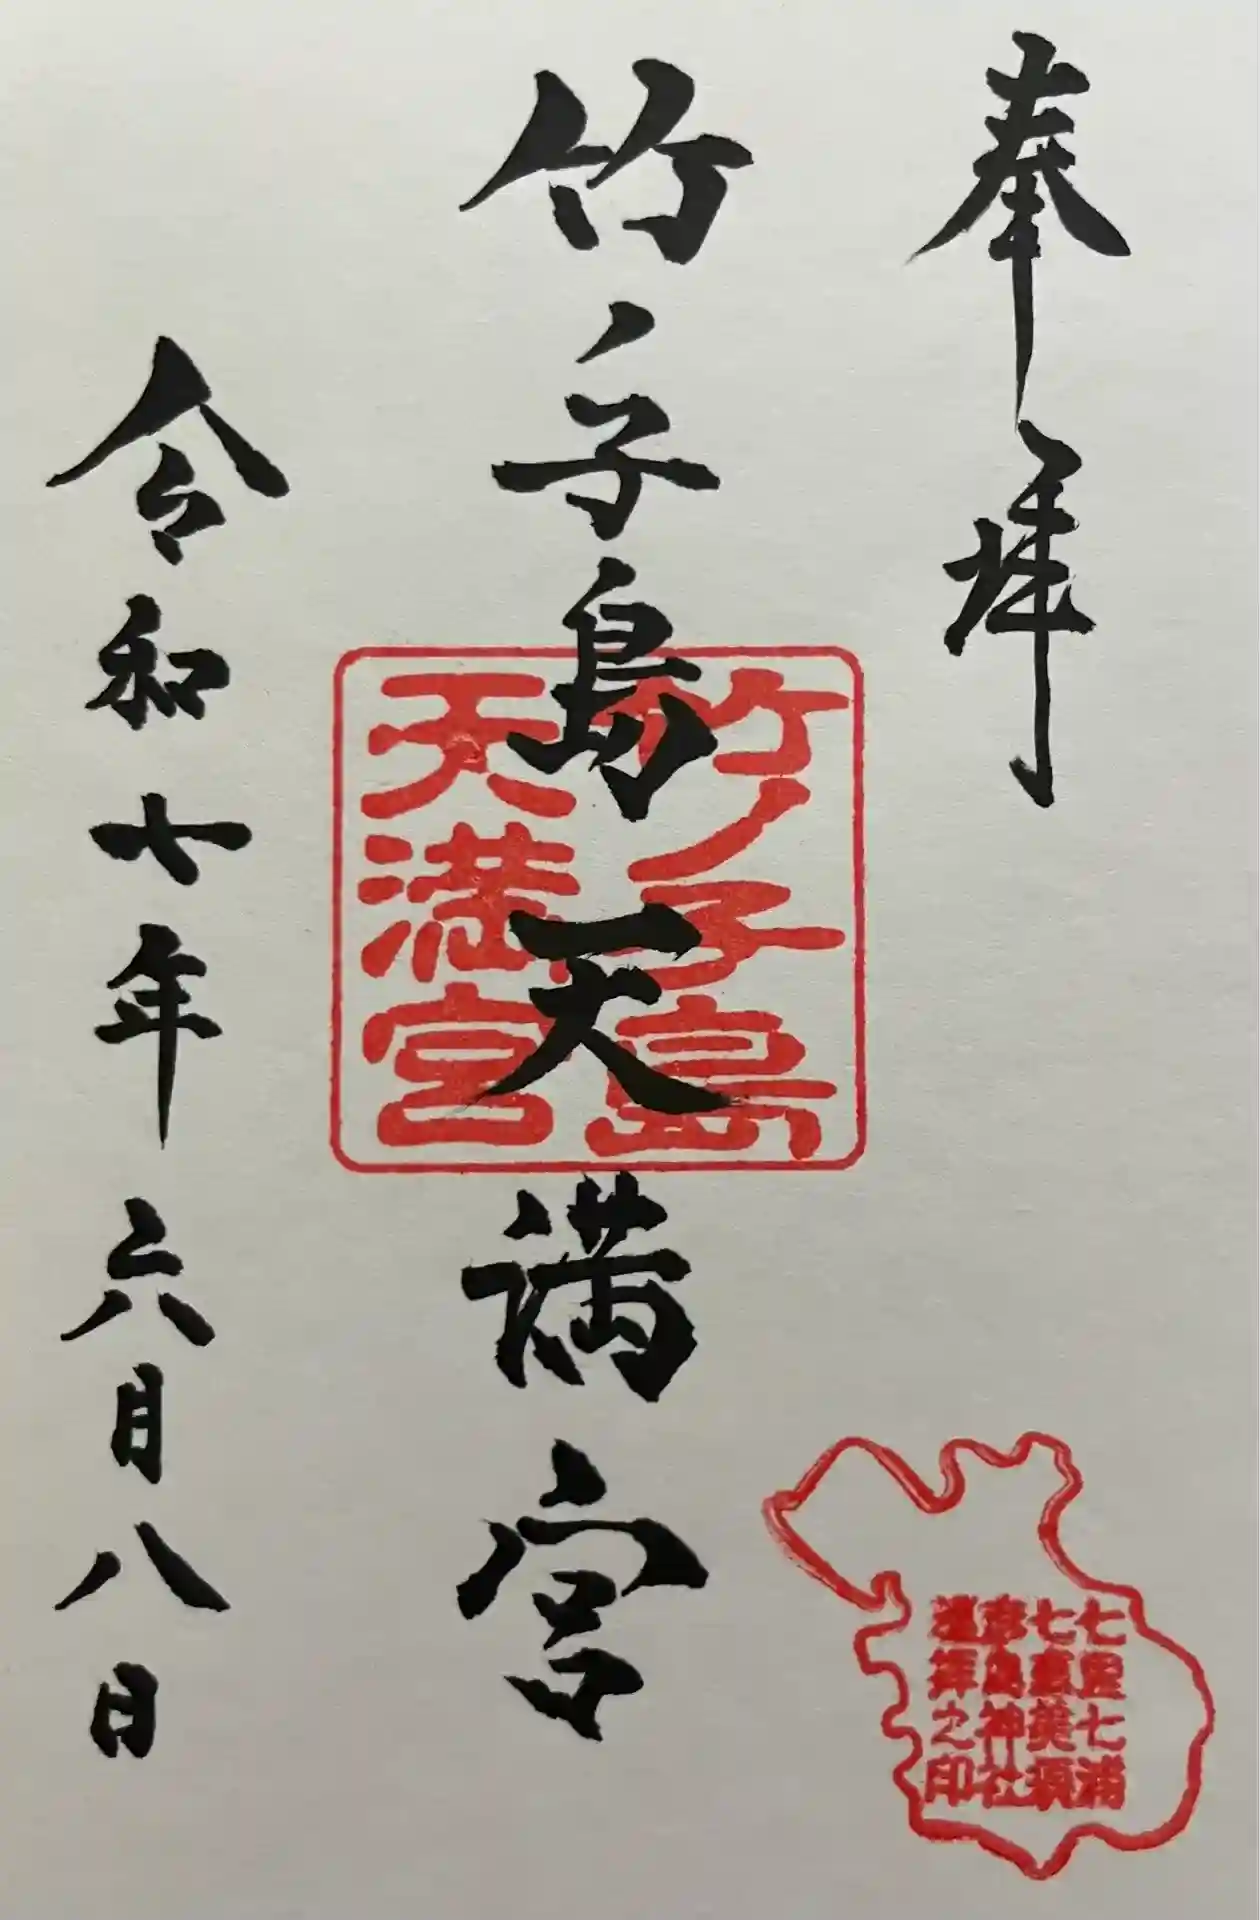 奉拝
竹ノ子島天満宮
竹ノ子島
天満宮
令和七年六月八日
七里七浦
七恵美須
彦島神社
遥拝之印